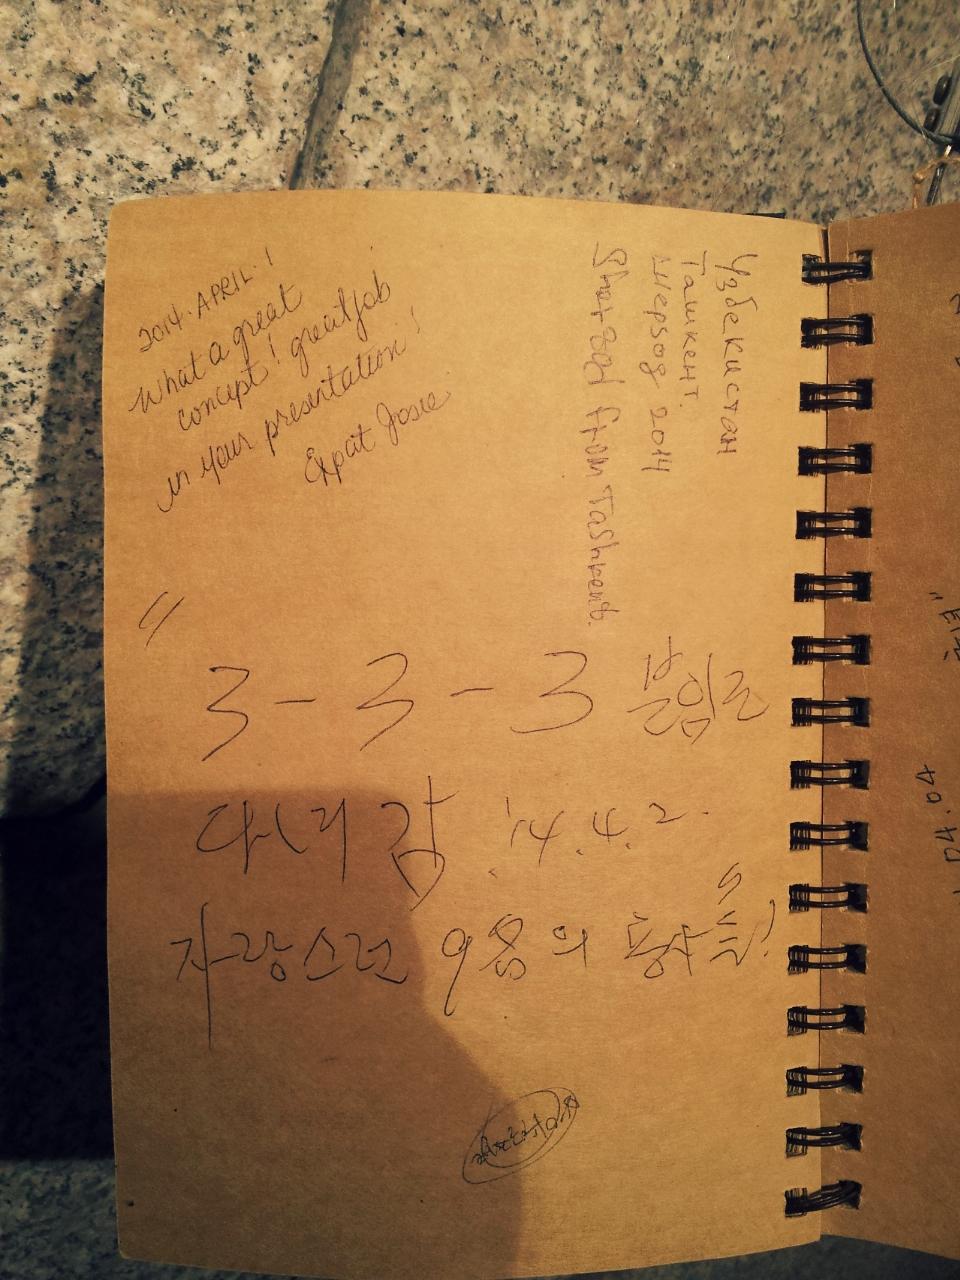 2014. APRIL. 1
What a great
concept! great job
in your presentation!
Expat Josie
Узбекистан
Ташкент.
Шерзод 2014
Sherzod from Tashkent.
"
3 - 3 - 3
다녀감 '14. 4. 2.
자랑스런 9용의 용사들!